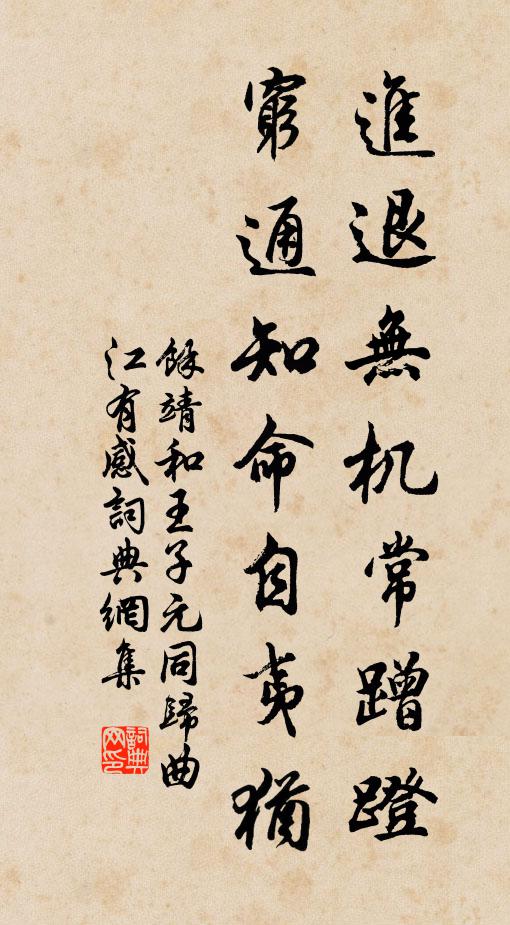 進退無机常蹭蹬
窮通知命自夷猶
餘靖和王子元同歸曲
江有感詞典網集
詞典
网印